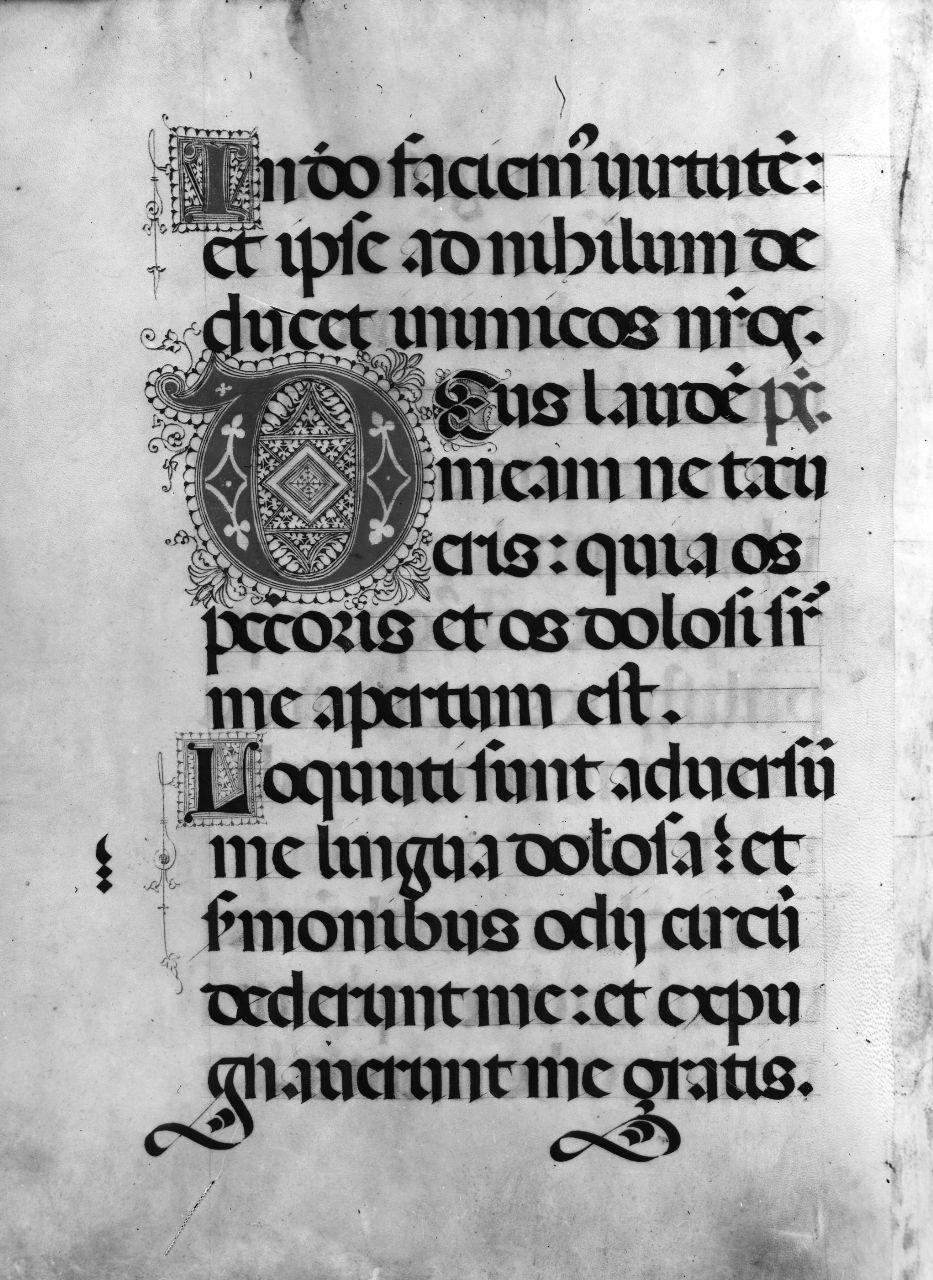 In dōo faciemꝰ uirtutē:
et ipse ad nihilum de
ducet inimicos nr̄os.
Deus laudē ps̄.
meam ne tacu
eris: quia os
pccōris et os dolosi sr̄
me apertum est.
Loquuti sunt aduersū
me lingua dolosa: et
sṙmonibus odij circū
dederunt me: et expu
gnauerunt me gratis.